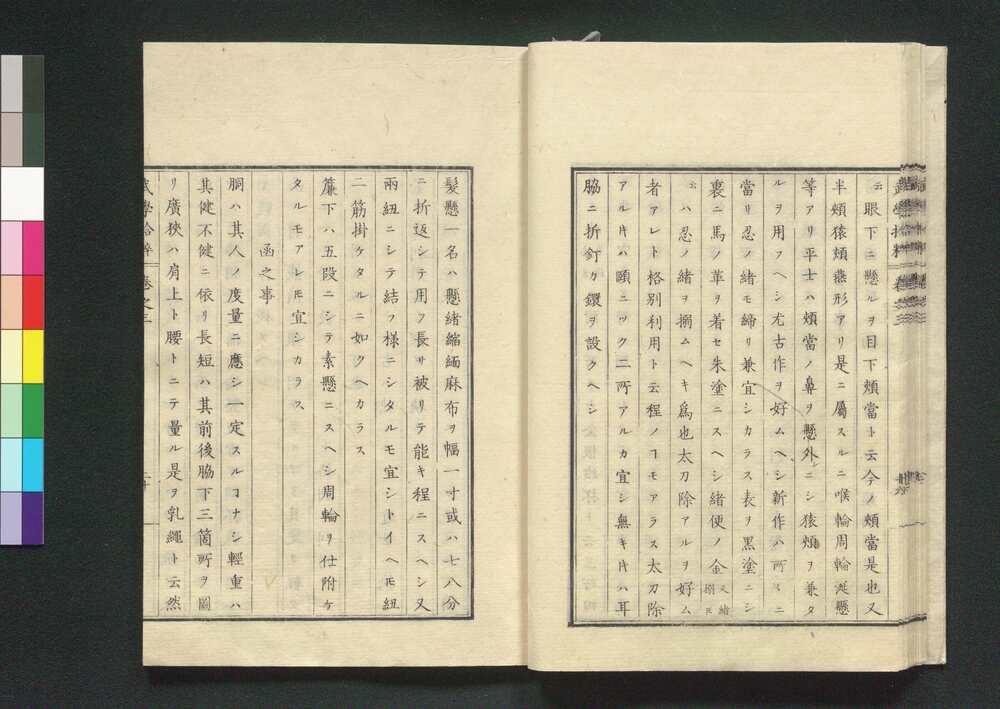 云眼下ニ懸ルヲ目下頬當ト云今ノ頬當是也又
半頬猿頬燕形アリ是ニ屬スルニ喉輪周輪涎懸
等アリ平士ハ頬當ノ鼻ヲ懸外ニシ猿頬ヲ兼タ
ルヲ用フヘシ尤古作ヲ好ムヘシ新作ハ所スニ
當リ忍ノ緒モ締リ兼宜シカラス表ヲ黒塗ニシ
裏ニ馬ノ革ヲ着セ朱塗ニスヘシ緒便ノ金又緒
云ハ忍ノ緒ヲ搦ムヘキ爲也太刀除アルヲ好ム
者アレト格別利用ト云程ノヿモアラス太刀除
アル片ハ頤ニツク二所アルカ宜シ無キ片ハ耳
脇ニ折釘カ鐶ヲ設クヘシ
髪懸一名ハ懸緒縮緬麻布ヲ幅一寸或ハ七八分
ニ折返シテ用フ長サ被リテ能キ程ニスヘシ又
兩紐ニシテ結フ様ニシタルモ宜シトイヘ𪜈紐
二筋掛ケタルニ如クヘカラス
簾下ハ五段ニシテ素懸ニスヘシ周輪ヲ仕附ケ
タルモアレ𪜈宜シカラス
函之事
胴ハ其人ノ度量ニ應シ一定スルヿナシ輕重ハ
其健不健ニ依リ長短ハ其前後脇下三箇所ヲ圖
リ廣狹ハ肩上ト腰トニテ量ル是ヲ乳繩ト云然